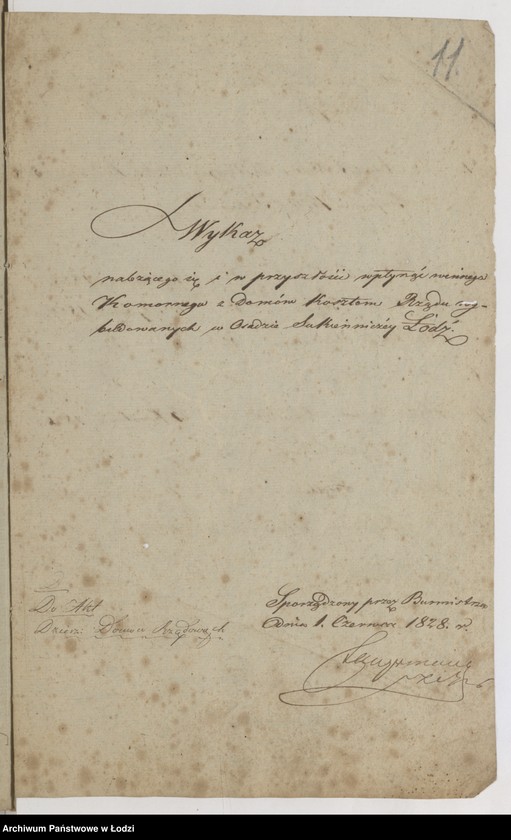 11.
Wykaz
należącego się i w przyszłości wpłynąć winnego
Komornego z Domów Kosztem Rządu wy-
budowanych w Osadzie Sukienniczéy Łódź.
Do Akt
Domów Rządowych
Sporządzony przez Burmistrza
Dnia 1. Czerwca 1828. r.
Archiwum Państwowe w Łodzi